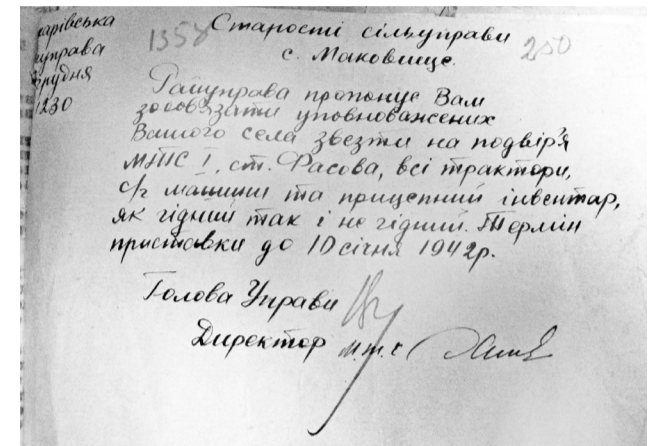 Старості сільуправи
1358
250
с. Маковище.
арівська
управа
грудня
1230
Райуправа пропонує Вам
зобов'язати уповноважених
Вашого села звезти на подвір'я
МТС I, ст. Фасова, всі трактори,
с/г машини та прицепний інвентар,
як гідний так і не гідний. Термін
приставки до 10 січня 1942р.
Голова Управи
Директор м.т.с